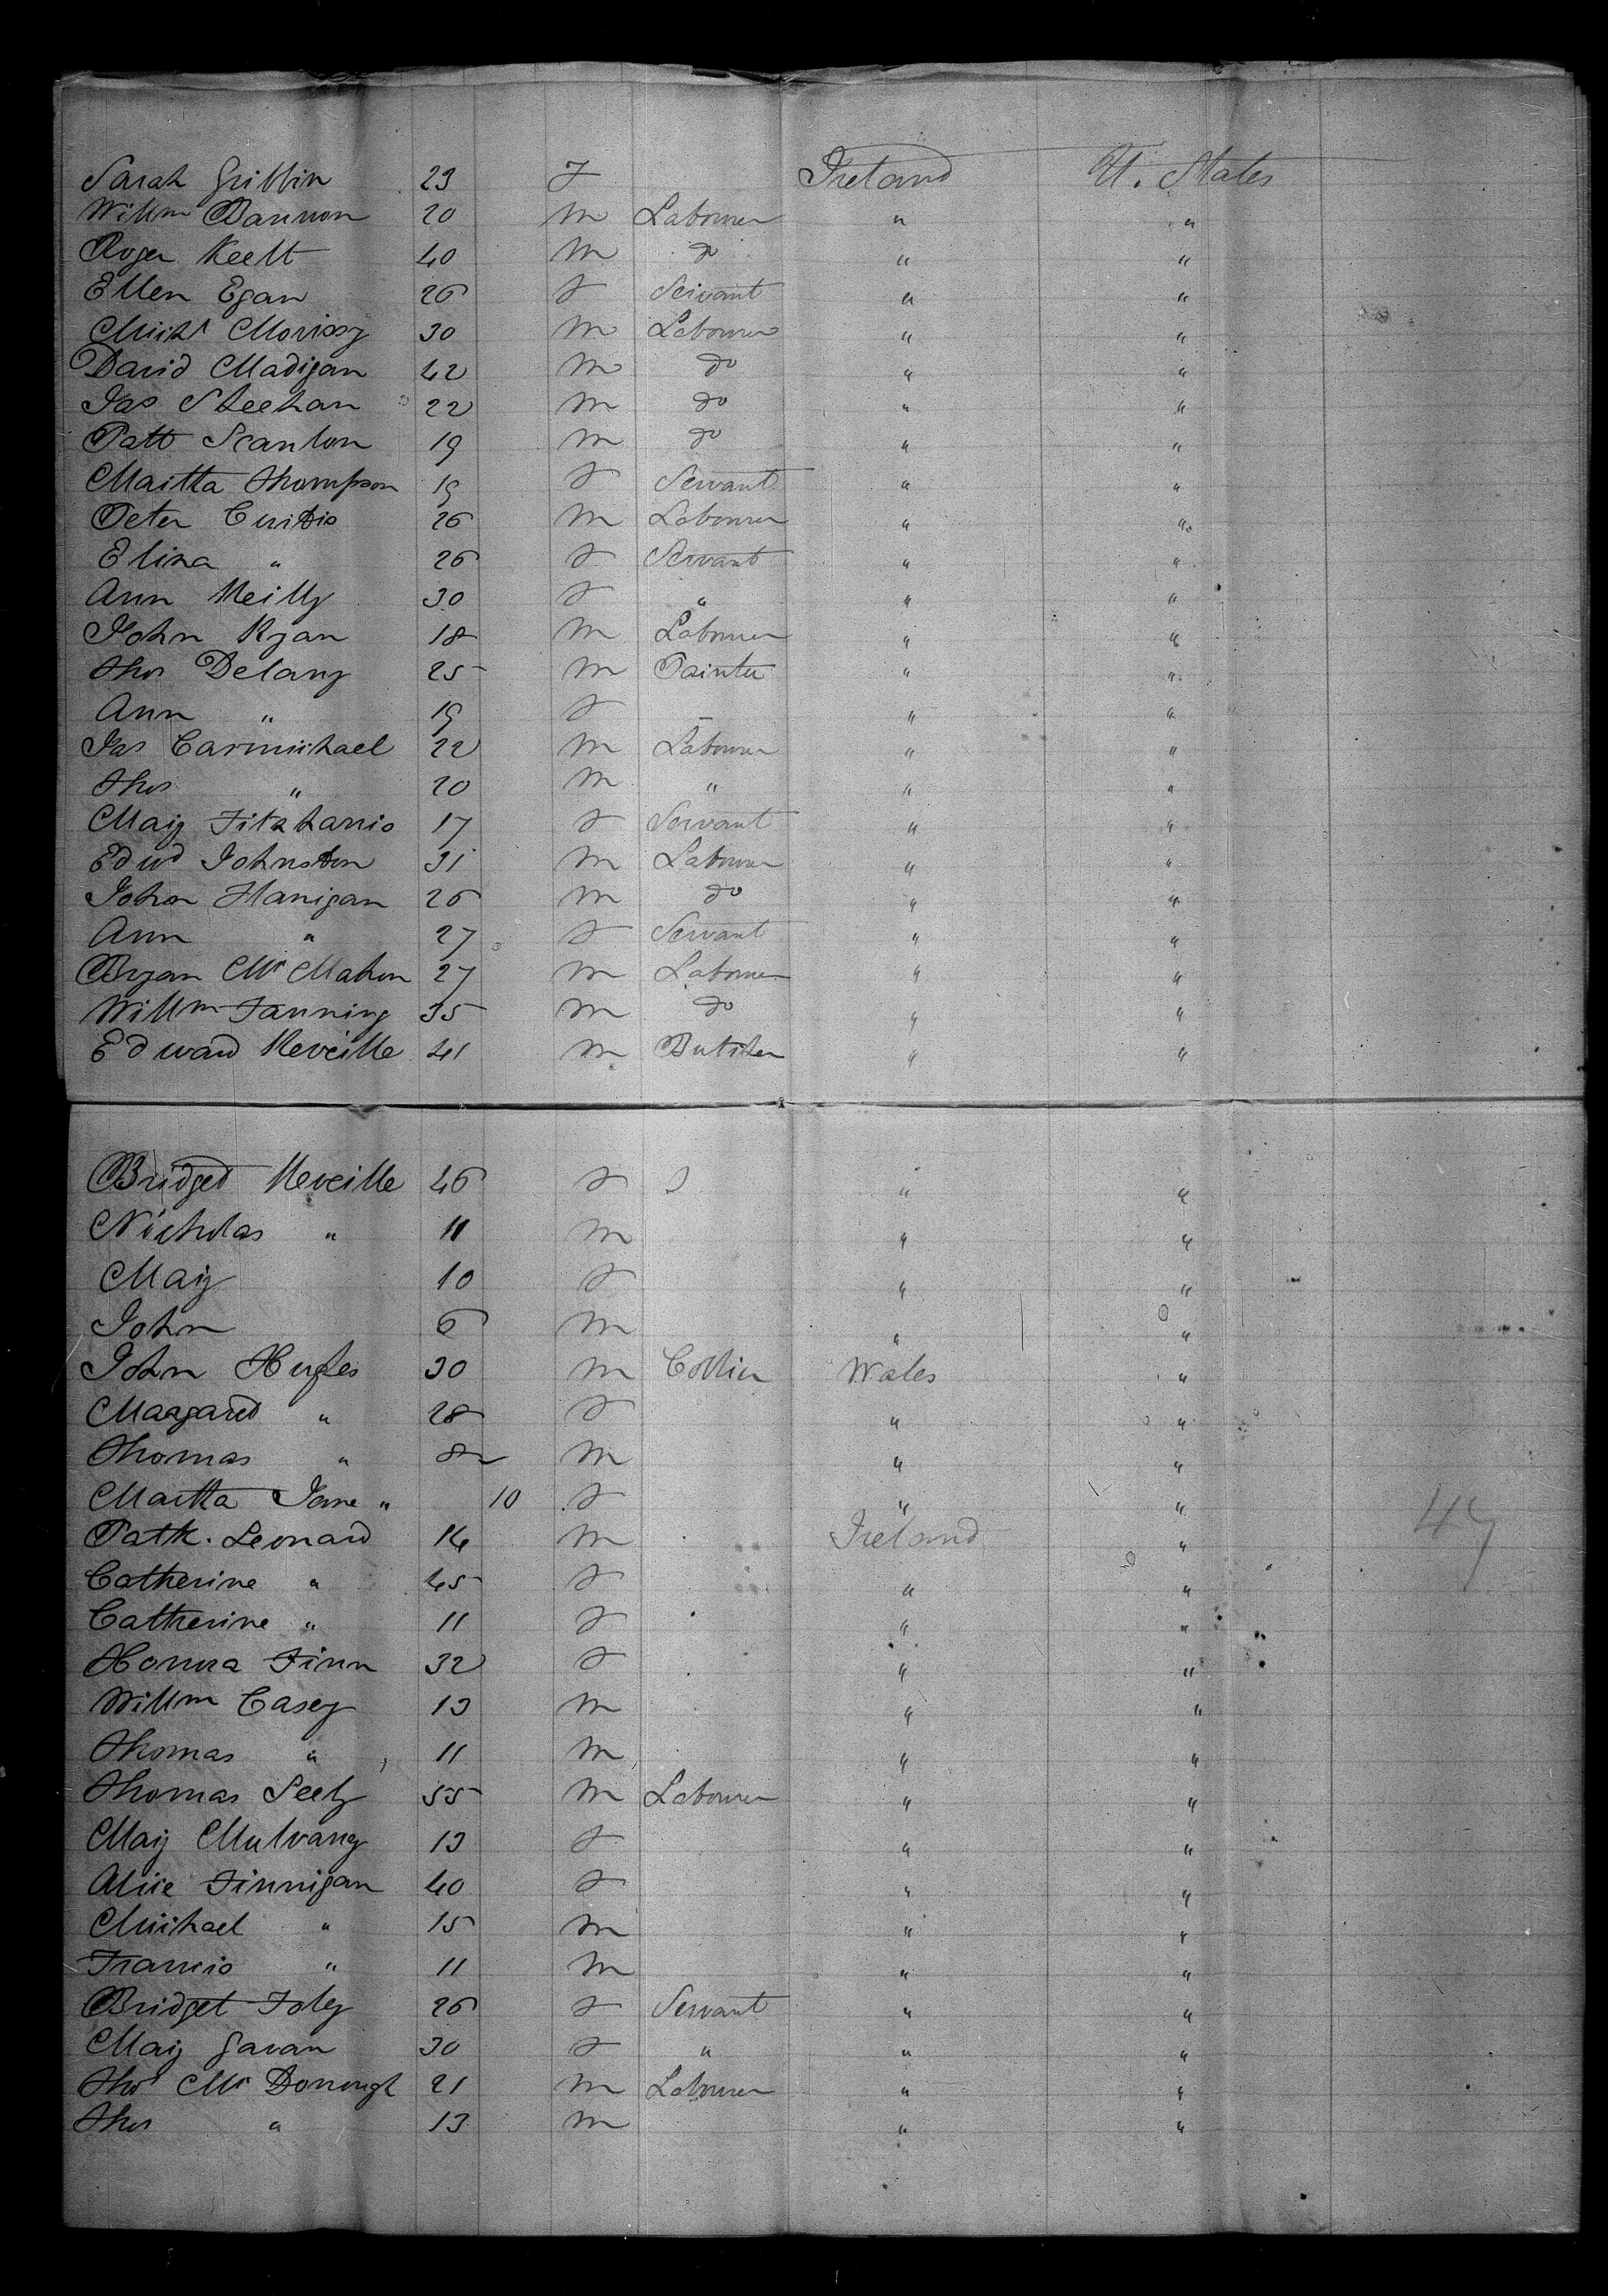 Sarah Griffin 23 F Ireland U. States
Willm Bannon 20 M Labourer " "
Roger Keelt 40 M do " "
Ellen Egan 26 F Servant " "
Michl Morissy 30 M Labourer " "
David Madigan 42 M do " "
Jas Sheehan 22 M do " "
Patt Scanlon 19 M do " "
Martha Thompson 19 F Servant " "
Peter Curtis 26 M Labourer " "
Eliza " 26 F Servant " "
Ann Reilly 30 F " " "
John Ryan 18 M Labourer " "
Thos Delany 25 M Painter " "
Ann " 19 F – " "
Jas Carmichael 22 M Labourer " "
Thos " 20 M " " "
Mary Fitzharris 17 F Servant " "
Edwd Johnston 31 M Labourer " "
John Flanigan 26 M do " "
Ann " 27 F Servant " "
Bryan Mc Mahon 27 M Labourer " "
Willm Fanning 35 M do " "
Edward Neveille 41 M Butcher " "
Bridget Neveille 46 F " "
Nicholas " 11 M " "
Mary 10 F " "
John 6 M " "
John Hughes 30 M Collier Wales "
Margaret " 28 F " "
Thomas " 8 M " "
Martha Jane " 10 F " "
Patk. Leonard 14 M Ireland " 47
Catherine " 45 F " "
Catherine " 11 F " "
Honora Finn 32 F " "
Willm Casey 13 M " "
Thomas " 11 M " "
Thomas Seely 55 M Labourer " "
Mary Mulvany 13 F " "
Alice Finnigan 40 F " "
Michael " 15 M " "
Francis " 11 M " "
Bridget Foley 26 F Servant " "
Mary Gavan 30 F " " "
Thos Mc Donough 21 M Labourer " "
Thos " 13 M " "